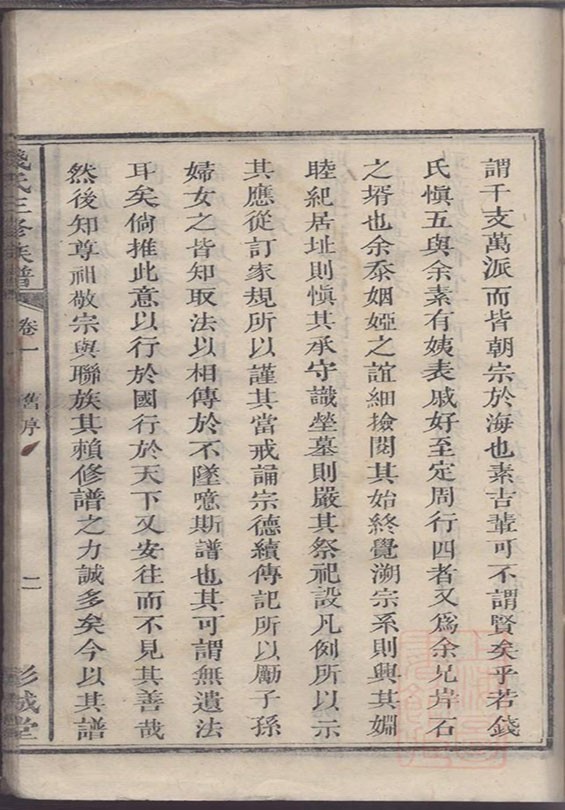 謂千支萬派而皆朝宗於海也素吉輩可不謂賢矣乎若錢
氏愼五與余素有姨表戚好至定周行四者又爲余兄岸石
之壻也余忝姻婭之誼細撿閱其始終覺溯宗系則興其婣
睦紀居址則愼其承守識塋墓則嚴其祭祀設凡例所以示
其應從訂家規所以謹其當戒誦宗德續傳記所以勵子孫
婦女之皆知取法以相傳於不墜噫斯譜也其可謂無遺法
耳矣倘推此意以行於國行於天下又安往而不見其善哉
然後知尊祖敬宗與聯族其賴修譜之力誠多矣今以其譜
錢氏三修族譜
卷一
舊序
二
彭城堂